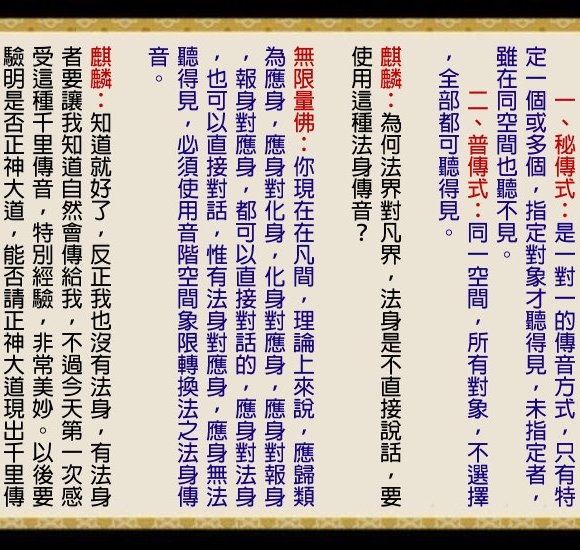 一、秘傳式：是一對一的傳音方式，只有特
定一個或多個，指定對象才聽得見，未指定者，
雖在同空間也聽不見。
二、普傳式：同一空間，所有對象，不選擇
，全部都可聽得見。
麒麟：為何法界對凡界，法身是不直接說話，要
使用這種法身傳音？
無限量佛：你現在在凡間，理論上來說，應歸類
為應身，應身對化身，化身對應身，應身對報身
，報身對應身，都可以直接對話的，應身對法身
，也可以直接對話，惟有法身對應身，應身無法
聽得見，必須使用音階空間象限轉換法之法身傳
音。
麒麟：知道就好了，反正我也沒有法身，有法身
者要讓我知道自然會傳給我，不過今天第一次感
受這種千里傳音，特別經驗，非常美妙。以後要
驗明是否正神大道，能否請正神大道現出千里傳